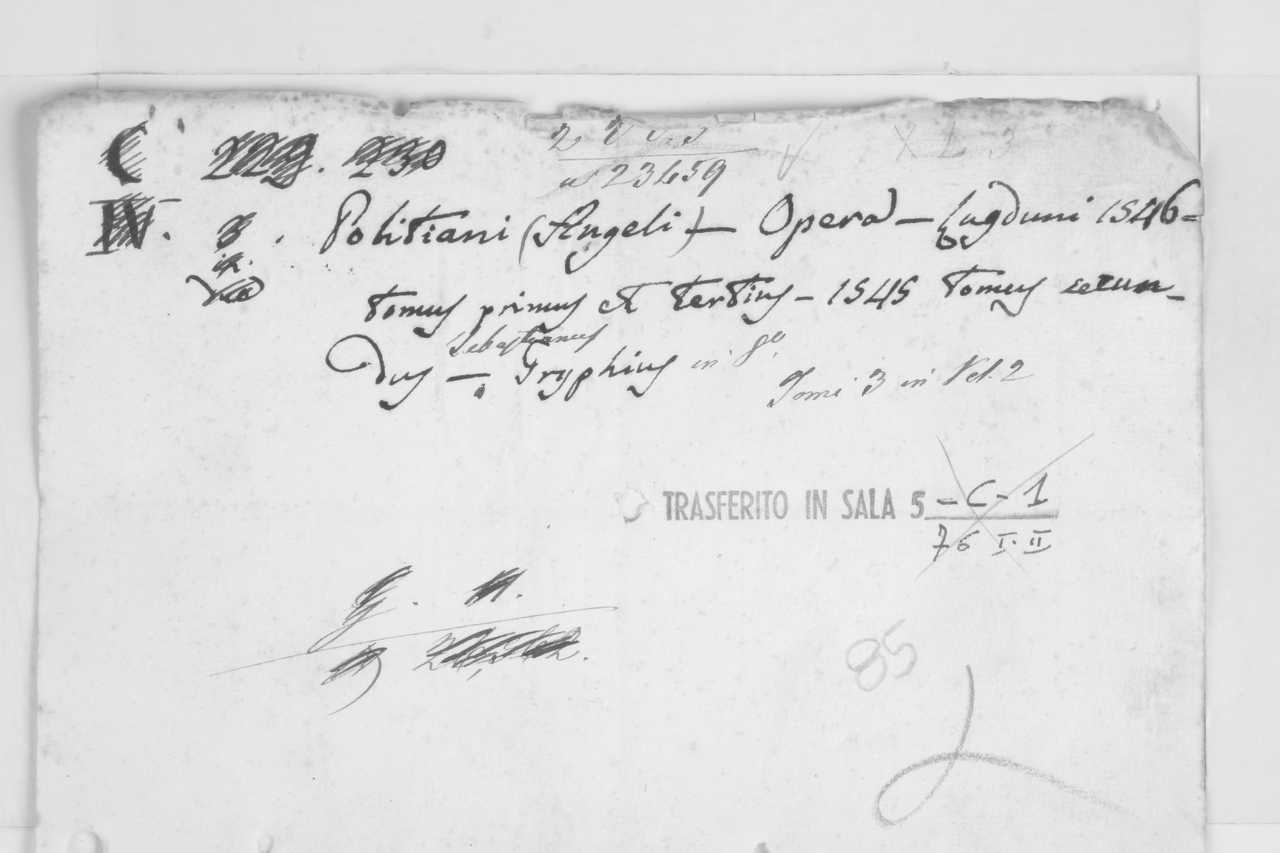 23659
IV. Politiani (Angeli) – Opera – Lugduni 1546 =
tomus primus et tertius – 1545 tomus secun_
Sebastianus
dus – Gryphius in 8º
Tomi 3 in Vol. 2
TRASFERITO IN SALA 5 – C – 1
76 I. II
85